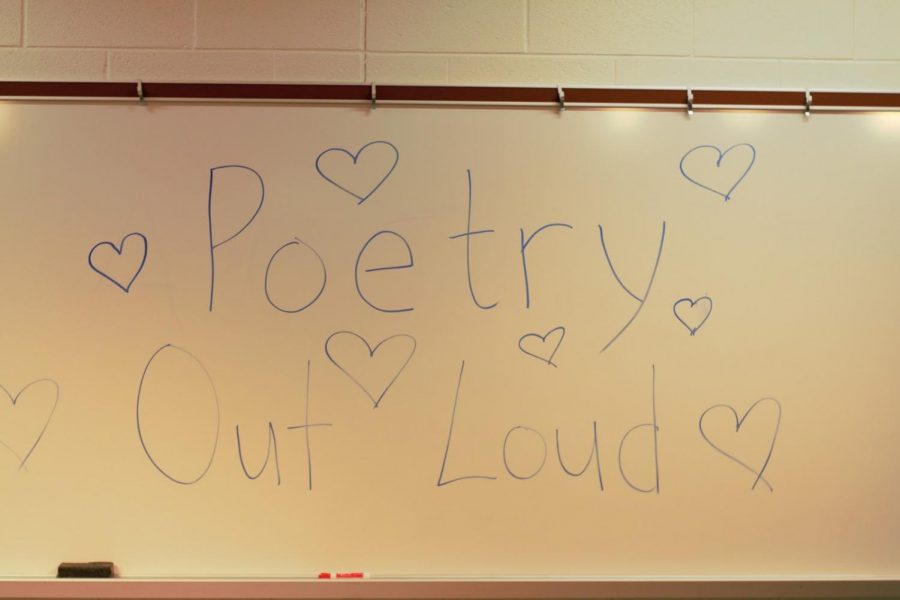 Poetry
Out Loud